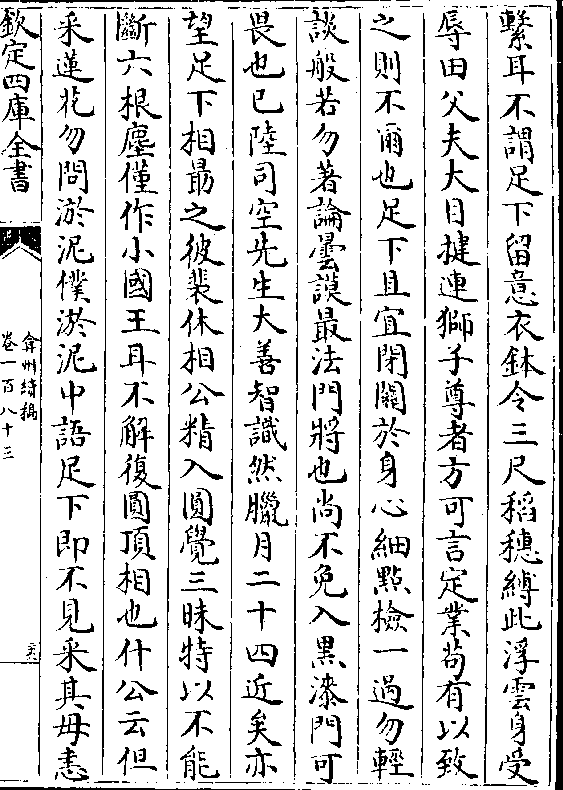 繫耳不謂足下留意衣鉢令三尺稻穗縛此浮雲身受
辱田父夫大目揵連獅子尊者方可言定業苟有以致
之則不爾也足下且宜閉關於身心細㸃檢一過勿輕
談般若勿著論曇謨最法門將也尚不免入黒漆門可
畏也已陸司空先生大善智識然臘月二十四近矣亦
望足下相朂之彼裴休相公精入圓覺三昧特以不能
斷六根塵僅作小國王耳不解復圓頂相也什公云但
采蓮花勿問淤泥僕淤泥中語足下即不見采其毋恚
欽定四庫全書
弇州續稿
卷一百八十三